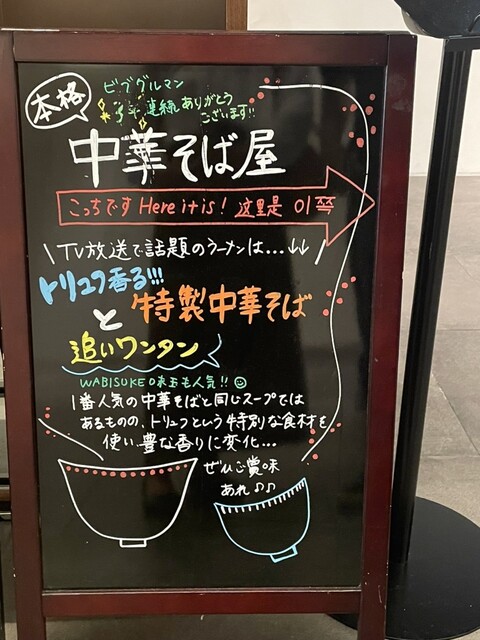 本格
ビブグルマン
連続ありがとう
ございます!!
中華そば屋
こっちです Here it is! 这里是 이쪽
\ TV放送で話題のラーメンは...↓↓ /
トリュフ香る!!!
と 特製中華そば
追いワンタン
WABISUKEの味玉も人気!!☺
1番人気の中華そばと同じスープでは
あるものの、トリュフという特別な食材を
使い、豊な香りに変化...
ぜひご賞味
あれ♪♪